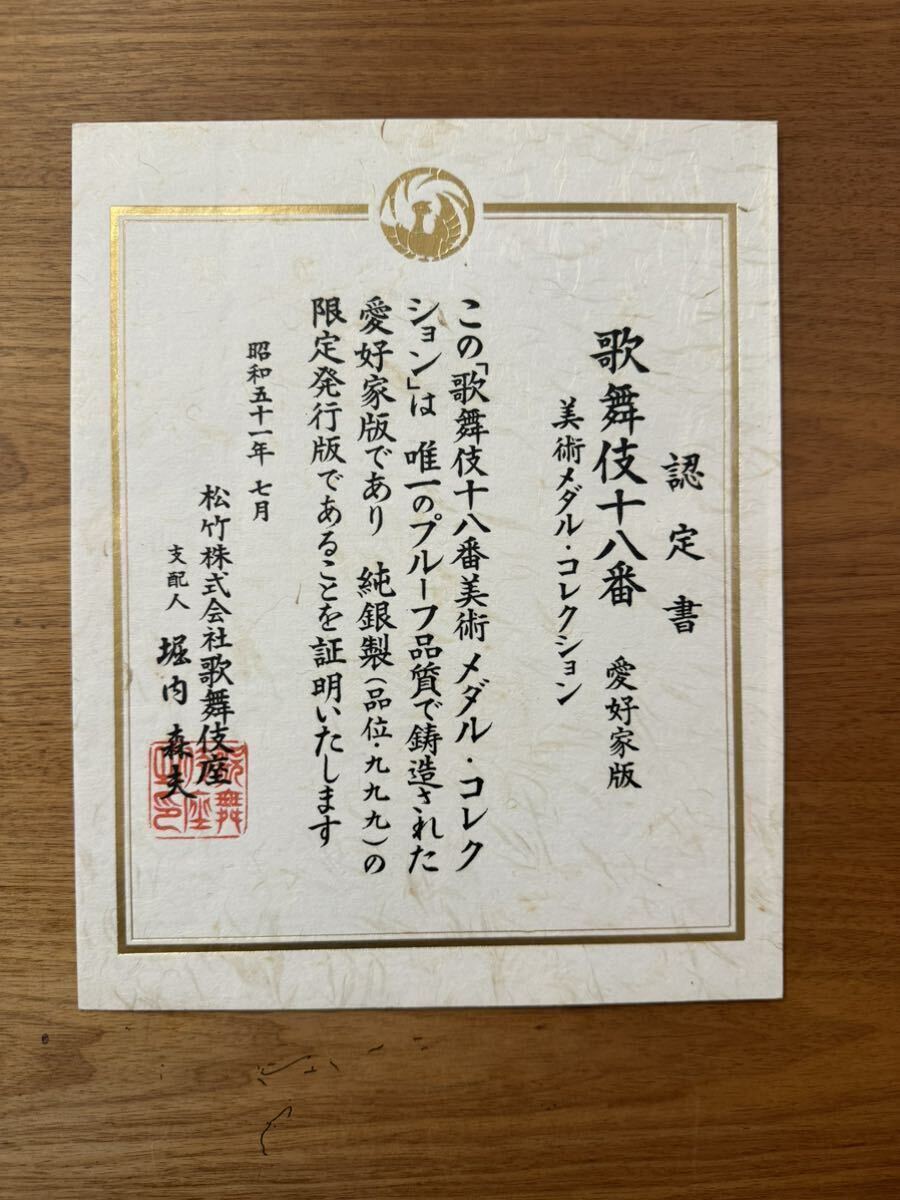 認定書
歌舞伎十八番 愛好家版
美術メダル・コレクション
この「歌舞伎十八番美術メダル・コレク
ション」は 唯一のプルーフ品質で鋳造された
愛好家版であり 純銀製(品位・九九九)の
限定発行版であることを証明いたします
昭和五十一年 七月
松竹株式会社歌舞伎座
支配人 堀内森夫
歌舞
伎座
之印